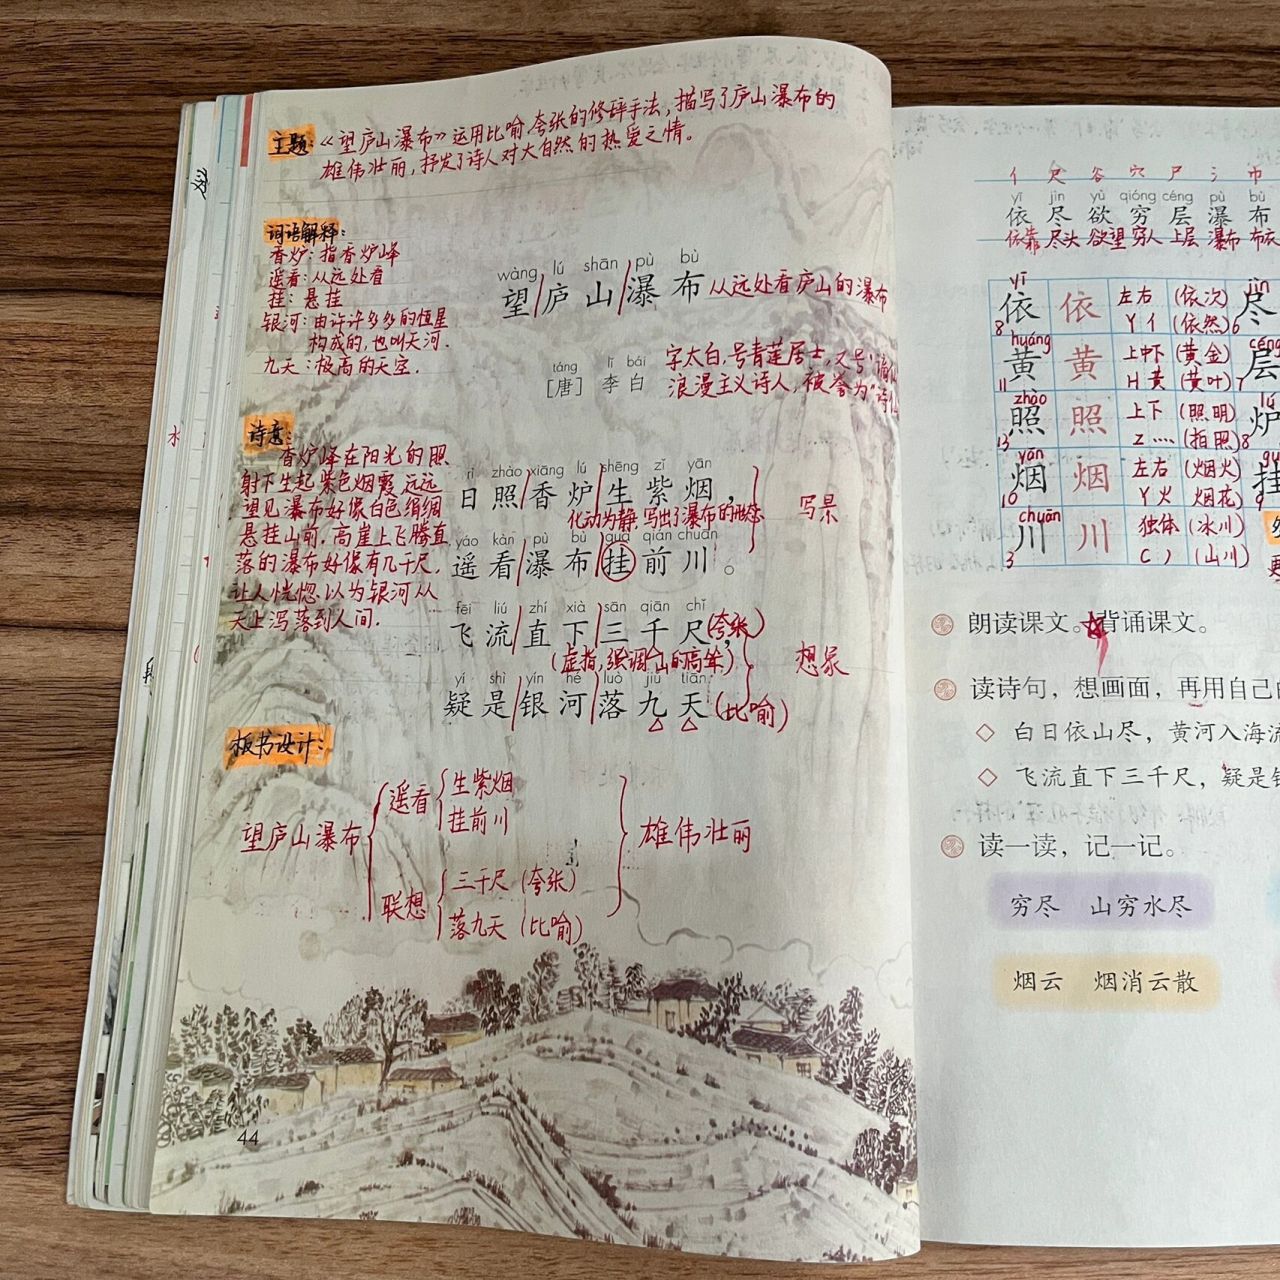 主题：《望庐山瀑布》运用比喻、夸张的修辞手法，描写了庐山瀑布的
雄伟壮丽，抒发了诗人对大自然的热爱之情。
词语解释：
香炉：指香炉峰
遥看：从远处看
挂：悬挂
银河：由许许多多的恒星
构成的，也叫天河.
九天：极高的天空.
wàng lú shān pù bù
望庐山瀑布 从远处看庐山的瀑布
táng lǐ bái
[唐] 李白
字太白，号青莲居士，又号“谪
浪漫主义诗人，被誉为“诗仙
诗意：
香炉峰在阳光的照
射下生起紫色烟霞，远远
望见瀑布好像白色绢绸
悬挂山前，高崖上飞腾直
落的瀑布好像有几千尺，
让人恍惚以为银河从
天上泻落到人间.
rì zhào xiāng lú shēng zǐ yān
日照香炉生紫烟，
化动为静，写出了瀑布的形态
写景
yáo kàn pù bù guà qián chuān
遥看瀑布挂前川。
fēi liú zhí xià sān qiān chǐ
飞流直下三千尺，(夸张)
(虚指，强调山的高耸)
想象
yí shì yín hé luò jiǔ tiān
疑是银河落九天(比喻)
板书设计：
望庐山瀑布
遥看
生紫烟
挂前川
联想
三千尺(夸张)
落九天(比喻)
雄伟壮丽
44
亻 尺 谷 穴 尸 氵 巾
yī jìn yù qióng céng pù bù
依尽欲穷层瀑布
依靠 尽头 欲望 穷人 上层 瀑布 布衣
yī
依 依 左右 (依次)
8 丫亻 (依然)
jìn
尽
6
huáng
黄 黄 上中下 (黄金)
11 H 黄 (黄叶)
céng
层
7
zhào
照 照 上下 (照明)
13 Z 灬 (拍照)
lú
炉
8
yān
烟 烟 左右 (烟火)
10 丫火 (烟花)
挂
9
chuān
川 川 独体 (冰川)
3 C 丿 (山川)
朗读课文。背诵课文。
读诗句，想画面，再用自己的
白日依山尽，黄河入海流
飞流直下三千尺，疑是银
读一读，记一记。
穷尽 山穷水尽
烟云 烟消云散